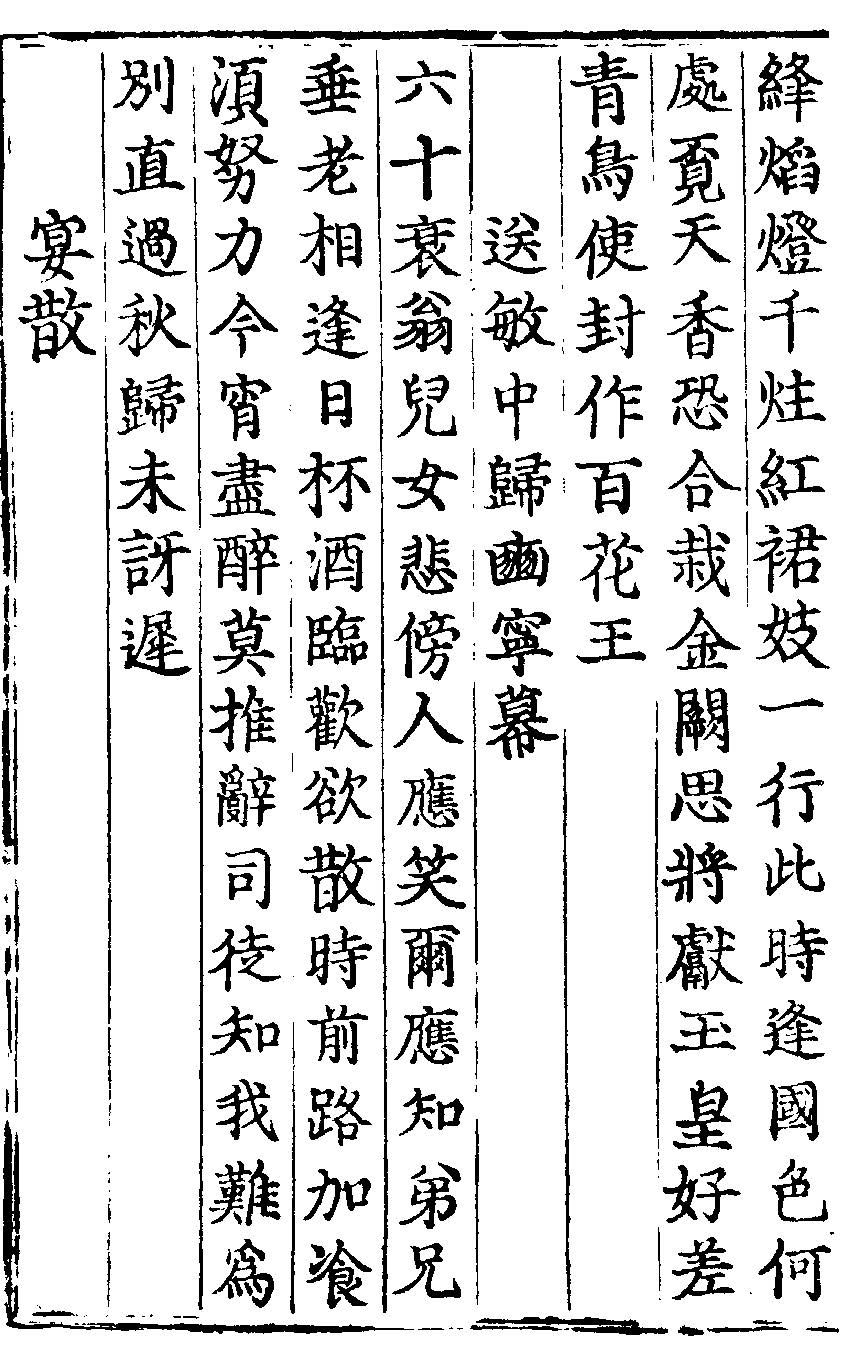 絳焰燈千炷紅裙妓一行此時逢國色何
處覓天香恐合栽金闕思將獻玉皇好差
青鳥使封作百花王
送敏中歸豳寧幕
六十衰翁兒女悲傍人應笑爾應知弟兄
垂老相逢日杯酒臨歡欲散時前路加飡
須努力今宵盡醉莫推辭司徒知我難為
別直過秋歸未訝遲
宴散